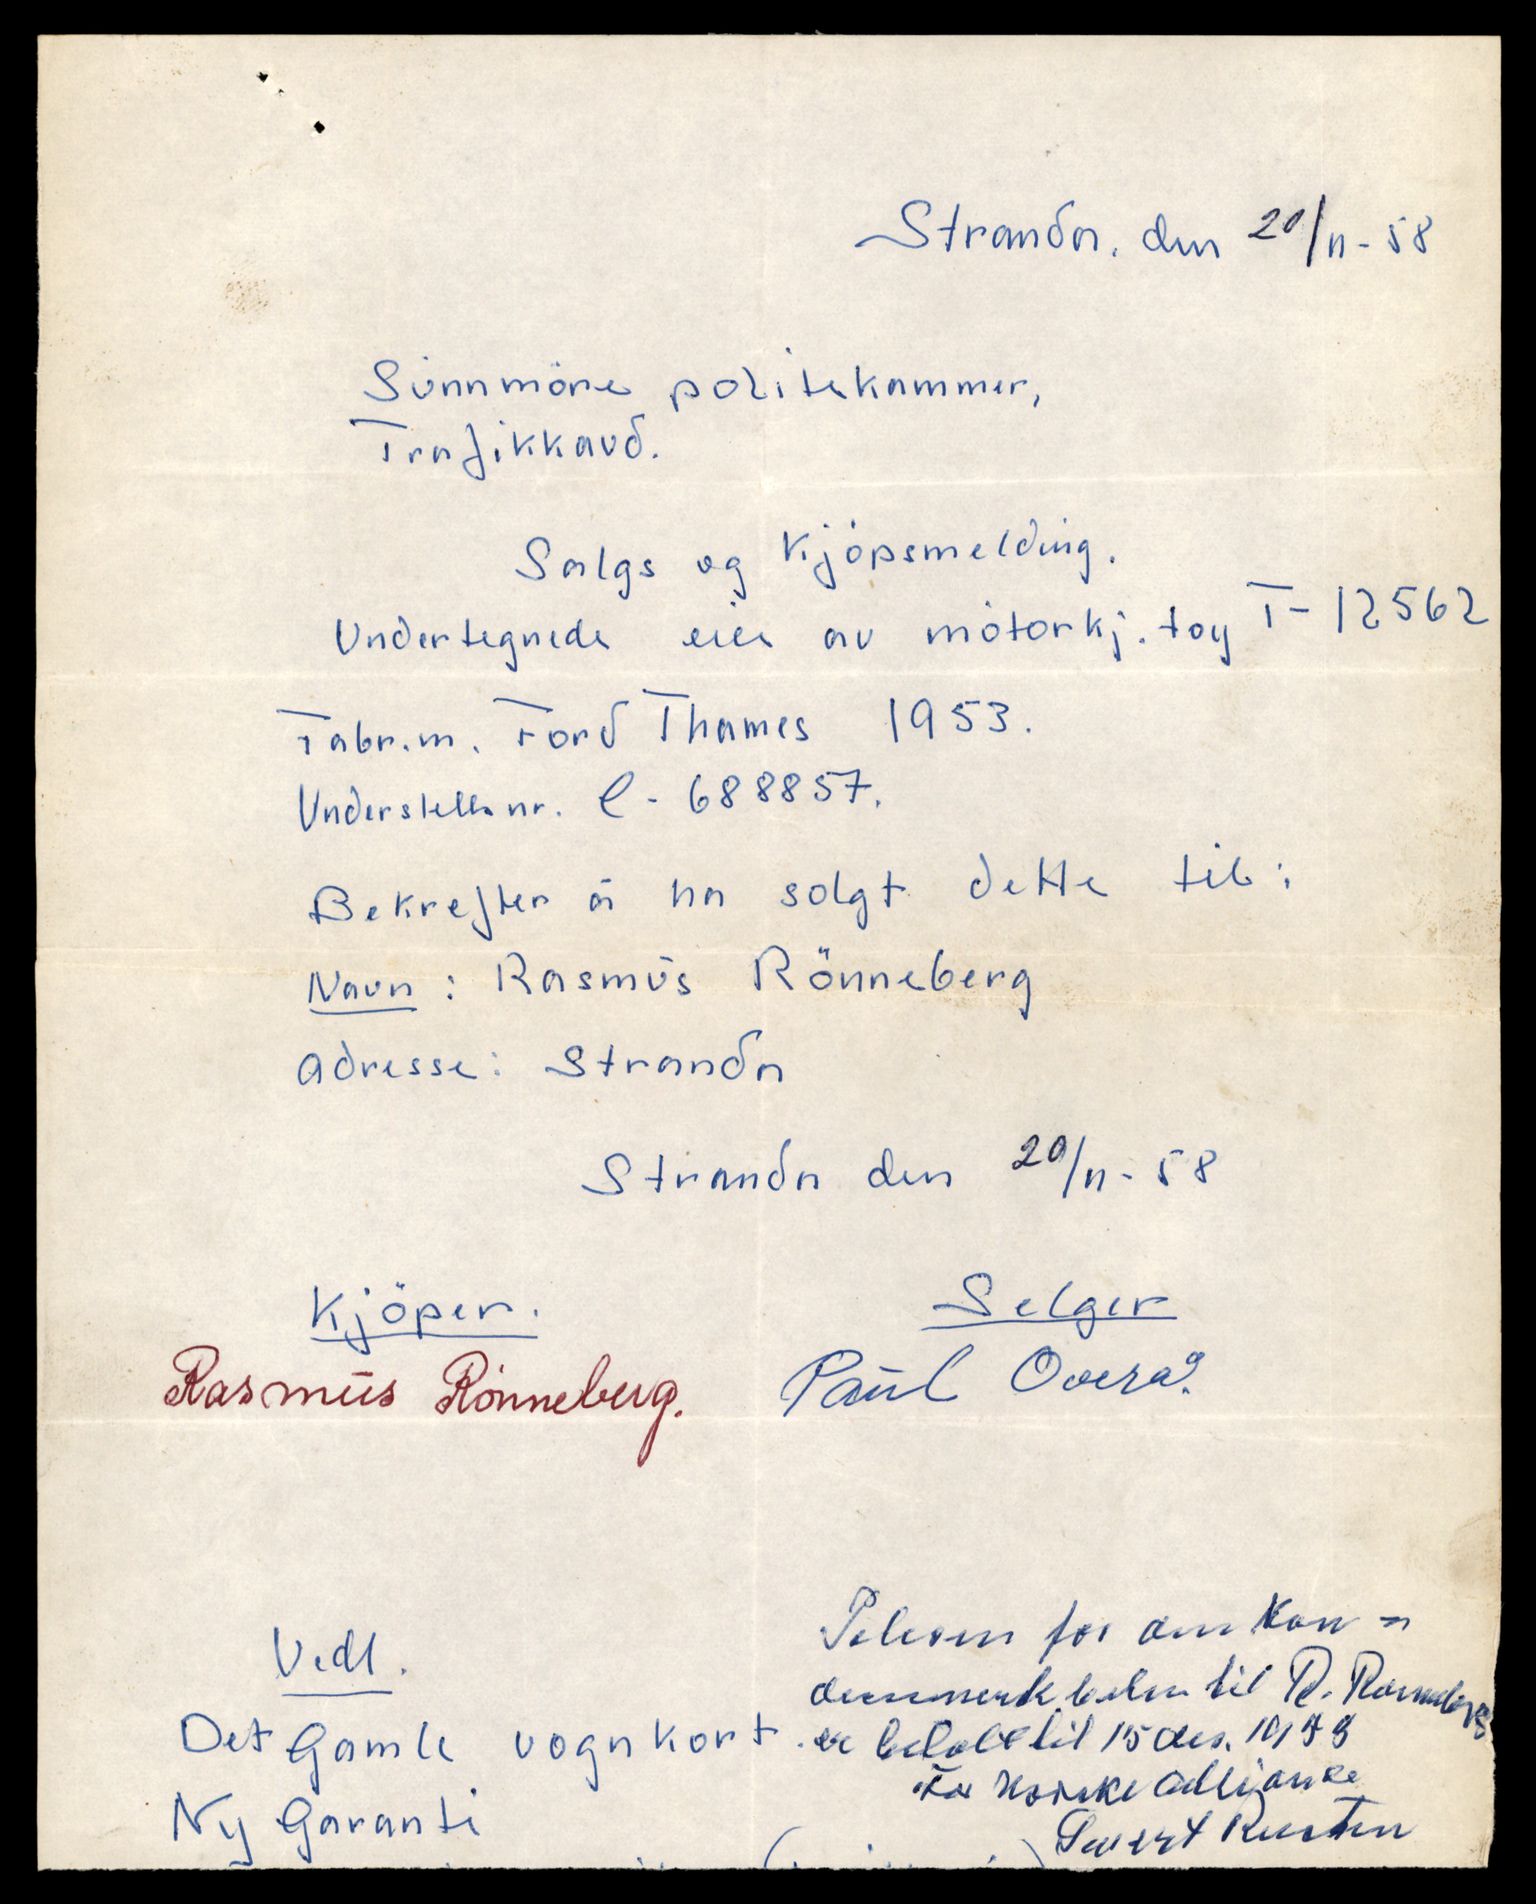 Stranda, den 20/11-58
Sunnmöre politekammer,
Trafikkavd.
Salgs og Kjöpsmelding.
Undertegnede eier av motorkj.tøy T-12562
Fabr.m. Ford Thames 1953.
Understells nr. C-688857.
Bekrefter å ha solgt dette til:
Navn: Rasmus Rönneberg
Adresse: Stranda
Stranda den 20/11-58
Kjöper.
Selger
Rasmus Rönneberg.
Paul Overå.
Vedl.
Det Gamle vognkort.
Ny Garanti
for
til R. Rønneberg
er betalt til 15 des. 19
For Norske Alliance
Sivert Rusten